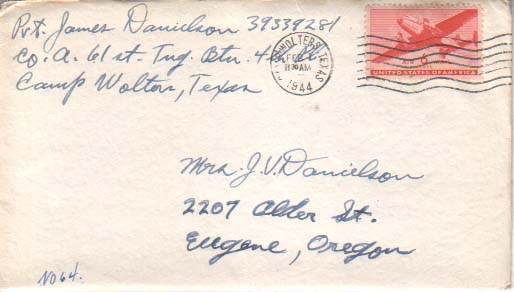 Pvt. James Danielson 39339281
Co. A. 61 st. Tng. Btn.
Camp Wolters, Texas
WOLTERS, TEXAS
FEB
11 30 AM
1944
6
UNITED STATES OF AMERICA
Mrs. J. V. Danielson
2207 Alder St.
Eugene, Oregon
No 64.